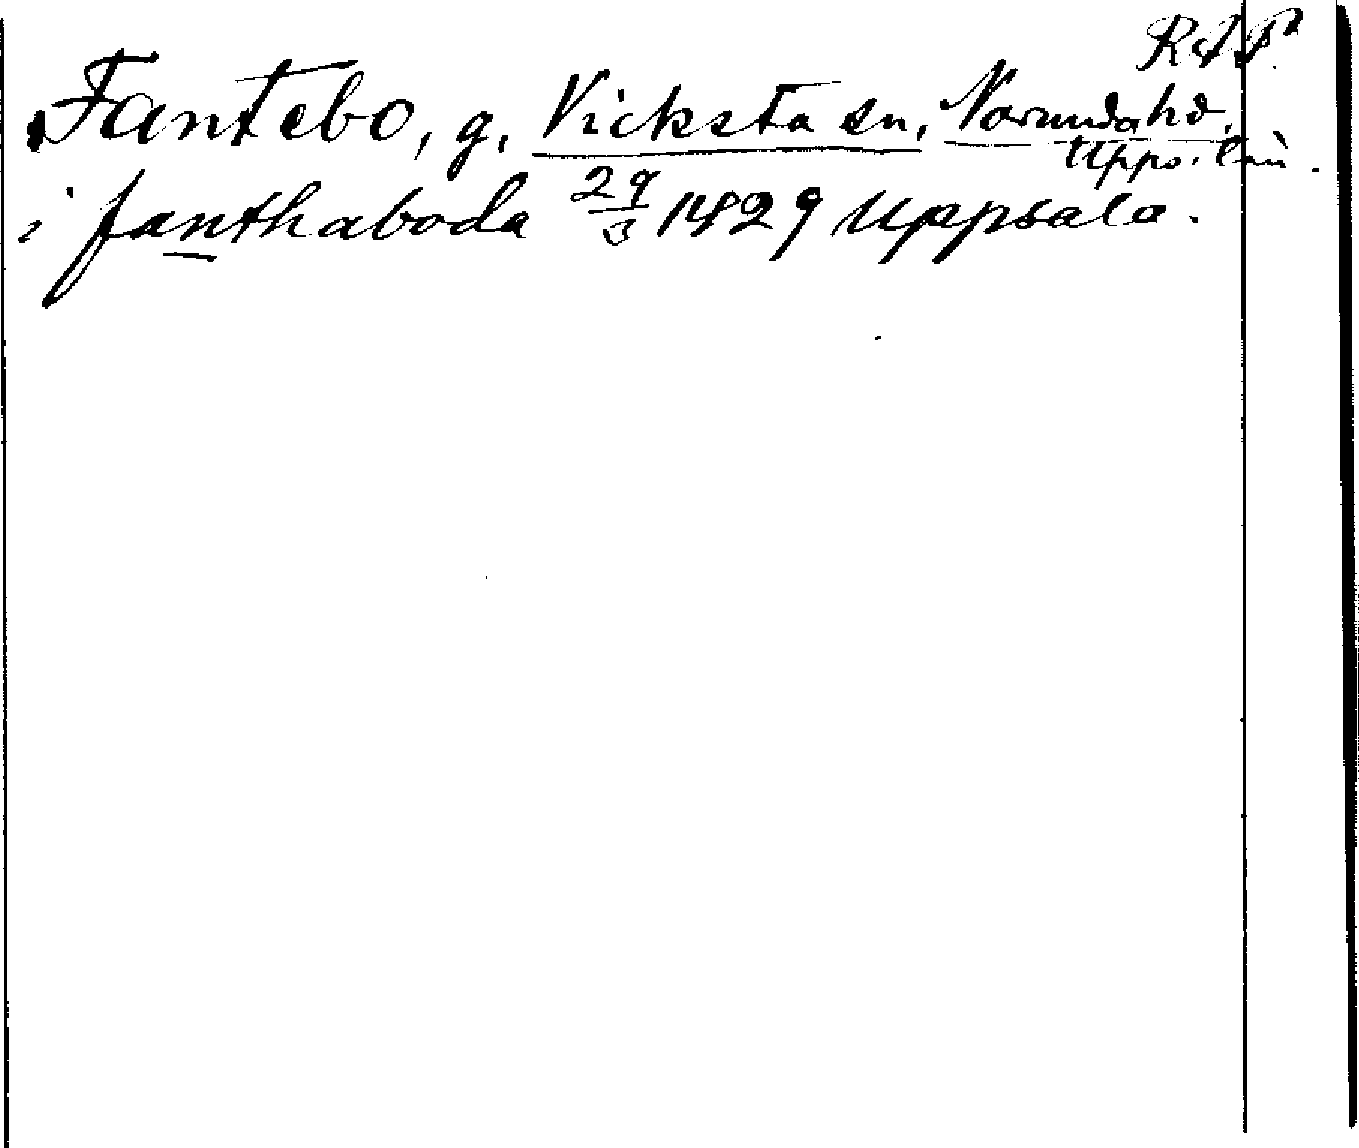 RAP.
Fantebo, g. Vicksta sn, Norunda hd.
Upps. län.
i fanthaboda 29/3 1429 Uppsala.